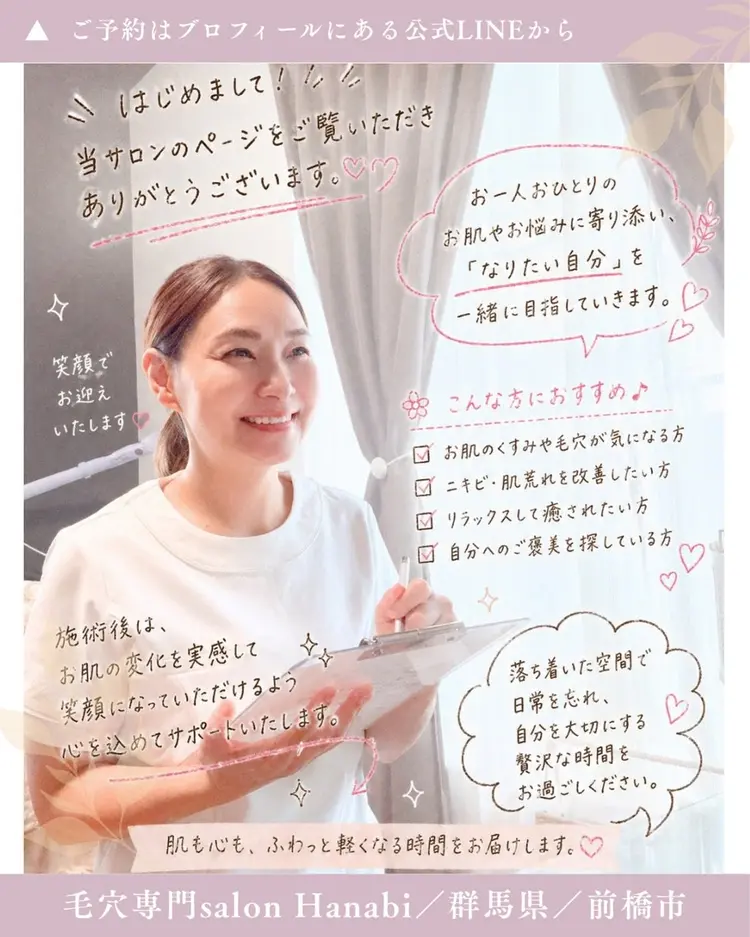 ▲ ご予約はプロフィールにある公式LINEから
はじめまして!
当サロンのページをご覧いただき
ありがとうございます。
お一人おひとりの
お肌やお悩みに寄り添い、
「なりたい自分」を
一緒に目指していきます。
笑顔で
お迎え
いたします
こんな方におすすめ♪
お肌のくすみや毛穴が気になる方
ニキビ・肌荒れを改善したい方
リラックスして癒されたい方
自分へのご褒美を探している方
施術後は、
お肌の変化を実感して
笑顔になっていただけるよう
心を込めてサポートいたします。
落ち着いた空間で
日常を忘れ、
自分を大切にする
贅沢な時間を
お過ごしください。
肌も心も、ふわっと軽くなる時間をお届けします。
毛穴専門salon Hanabi／群馬県／前橋市